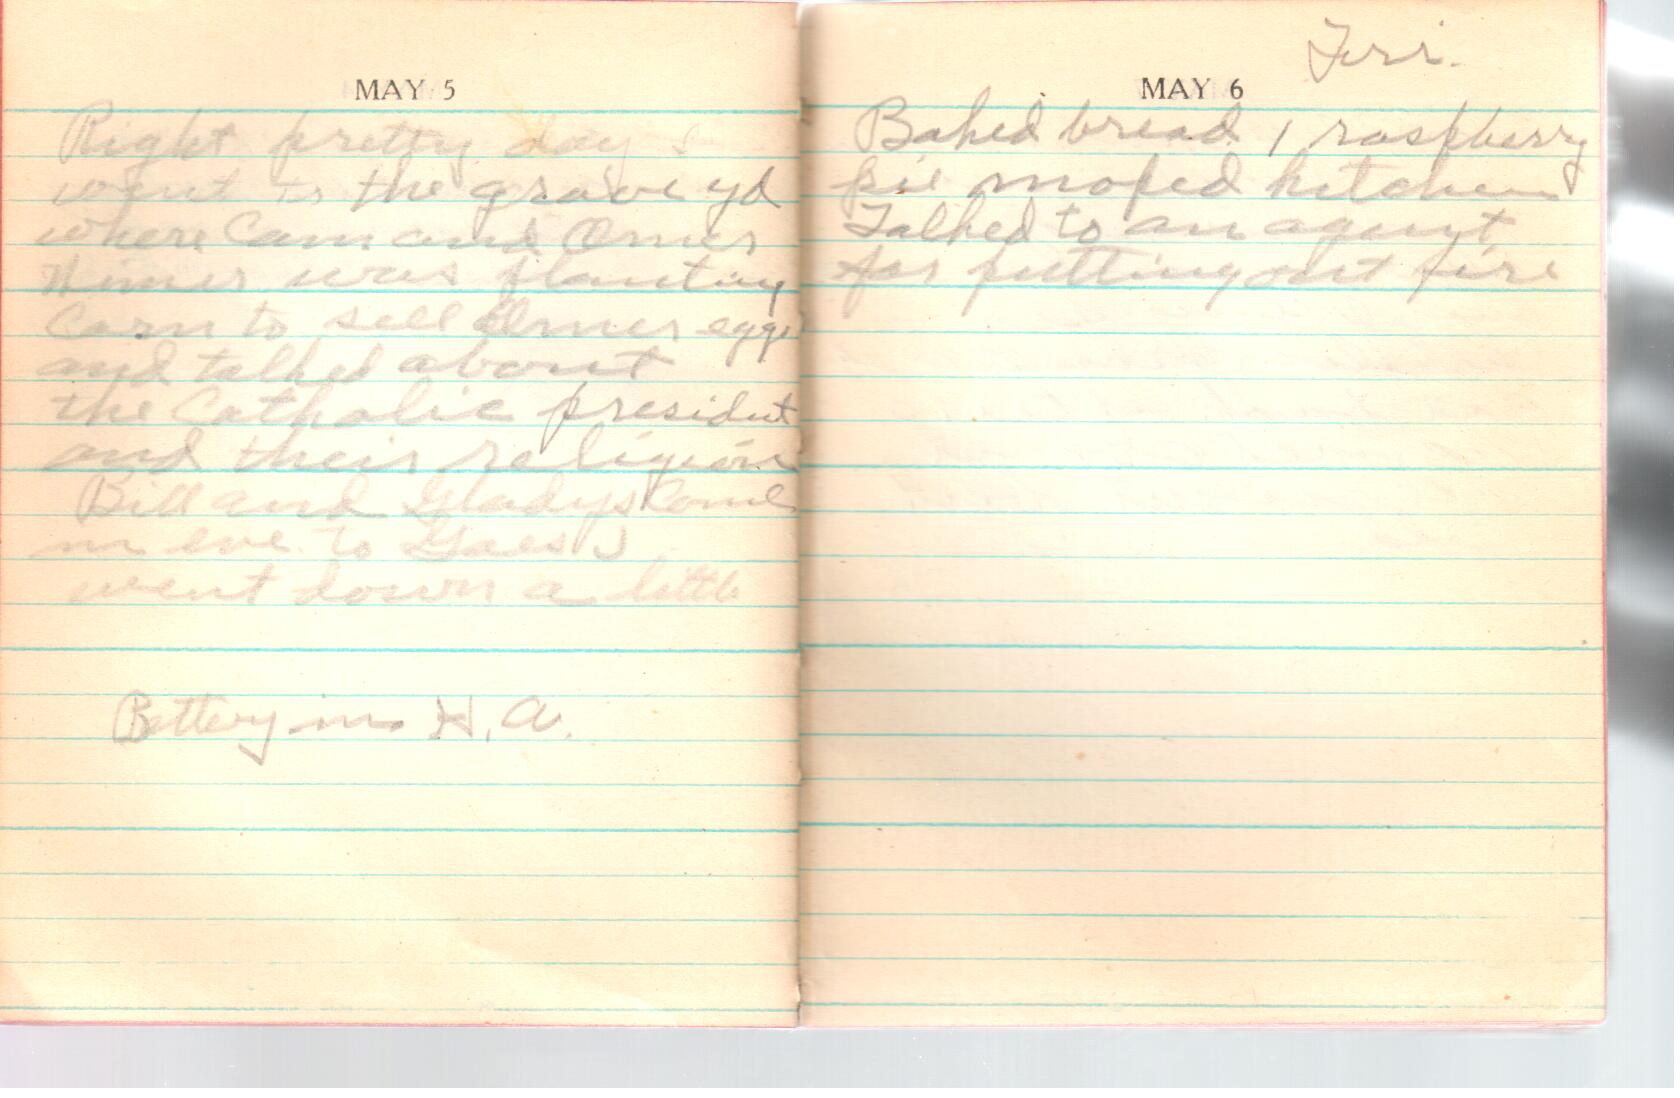 MAY 5
Right pretty day I
went to the grave yd
where Cam and Omer
Himer was planting
Corn to sell Omer eggs
and talked about
the Catholic president
and their religion
Bill and Gladys Come
in eve to I
went down a little
Battery in H. A.
MAY 6
Fri.
Baked bread 1 raspberry
pie moped kitchen
Talked to an agent
for putting out fire